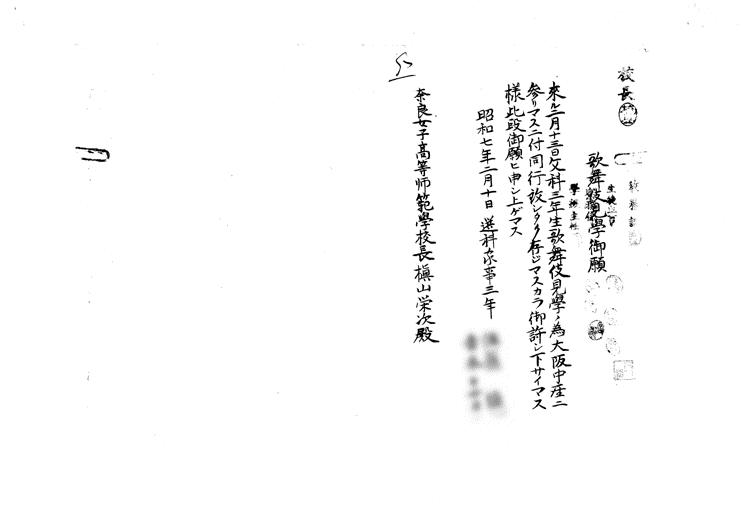 校長
歌舞伎見學御願
來ル二月十三日文科三年生歌舞伎見學ノ為大阪中座ニ
参リマスニ付同行致シタク存ジマスカラ御許シ下サイマス
様此段御願ヒ申シ上ゲマス
昭和七年二月十日 選科家事三年
奈良女子高等师範學校長 槇山栄次殿